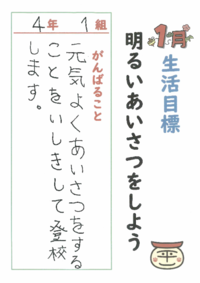 1月
生活目標
明るいあいさつをしよう
4年 1組
がんばること
元気よくあいさつをする
ことをいしきして登校
します。